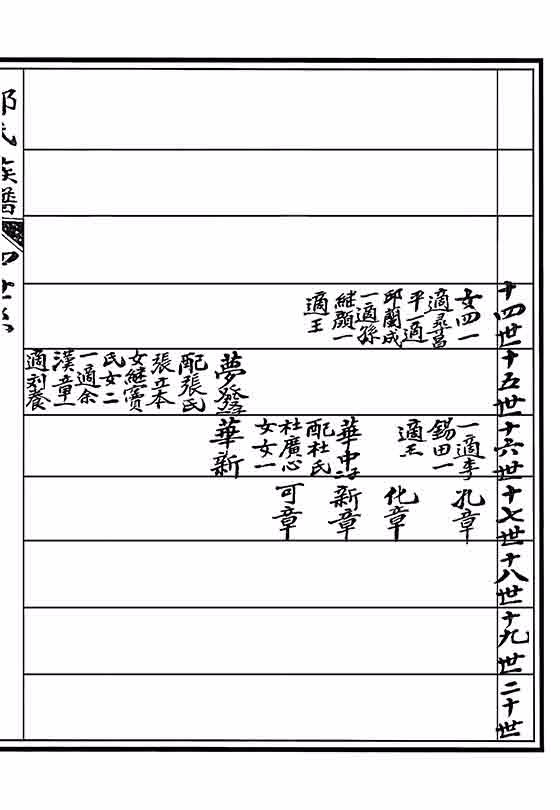 十四世
女四一
適
平一適
邱蘭成
一適孫
継顏一
適王
十五世
夢發
配張氏
張立本
女継賓
氏女二
一適余
漢章一
適刘養
十六世
一適李
錫田一
適王
華中子
配杜氏
杜廣心
女女一
華新
十七世
孔章
化章
新章
可章
十八世
十九世
二十世
氏族譜